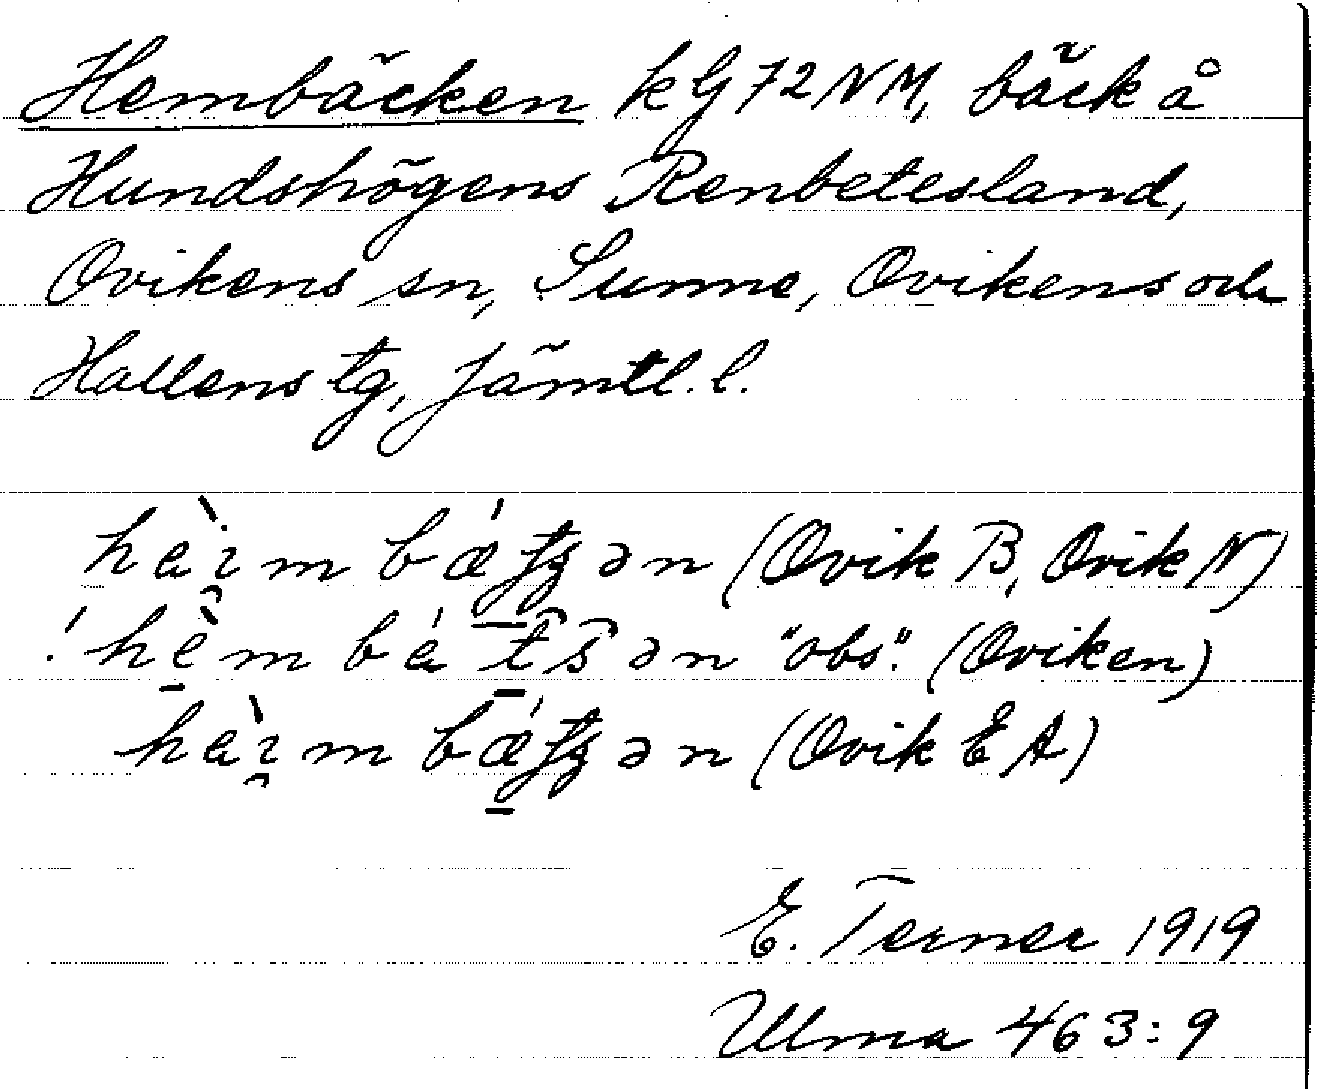 Hembäcken kG72NM, bäck å
Hundshögens Renbetesland,
Ovikens sn, Sunne, Ovikens och
Hallens tg, Jämtl. l.
(Ovik B, Ovik N)
"obs". (Oviken)
(Ovik E A)
E. Terner 1919
Ulma 463:9